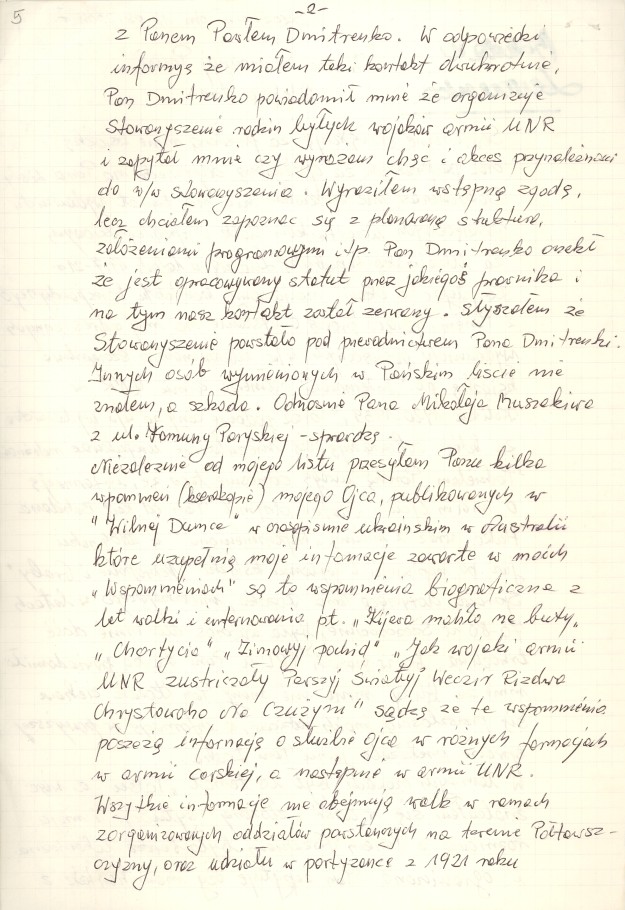 5
-2-
z Panem Pawłem Dmitrenko. W odpowiedzi
informuję że miałem taki kontakt dwukrotnie,
Pan Dmitrenko powiadomił mnie że organizuje
Stowarzyszenie rodzin byłych wojaków armii UNR
i zapytał mnie czy wyrażam chęć i akces przynależności
do w/w stowarzyszenia. Wyraziłem wstępną zgodę,
lecz chciałem zapoznac się z planowaną stukturą,
założeniami programowymi itp. Pan Dmitrenko orzekł
że jest opracowywany statut przez jakiegoś prawnika i
na tym nasz kontakt został zerwany. Słyszałem że
Stowarzyszenie powstało pod przewodnictwem Pana Dmitrenki.
Innych osób wymienionych w Pańskim liscie nie
znałem, a szkoda. Odnośnie Pana Mikołaja
z ul. Komuny Paryskiej - sprawdzę.
Niezależnie od mojego listu przesyłam Panu kilka
wspomnień (kserokopie) mojego Ojca, publikowanych w
"Wilnej Dumce" w czasopiśmie ukraińskim w Australii
które uzupełnią moje infomacje zawarte w moich
"Wspomnieniach" są to wspomnienia biograficzne z
lat walki i internowania pt. "Kijewa mahło na buty"
"Chortycia" "Zimowyj pochid" "Jak wojaki armii
UNR zustriczały Perszyj Światyj Weczir Rizdwa
Chrystowoho Na Czużyni" sądzę że te wspomnienia
poszeżą informację o służbie ojca w różnych formacjach
w armii carskiej, a następnie w armii UNR.
Wszytkie informacje nie obejmują walk w ramach
zorganizowanych oddziałów powstańczych na terenie Połtawsz-
czyzny, oraz udziału w partyzance z 1921 roku